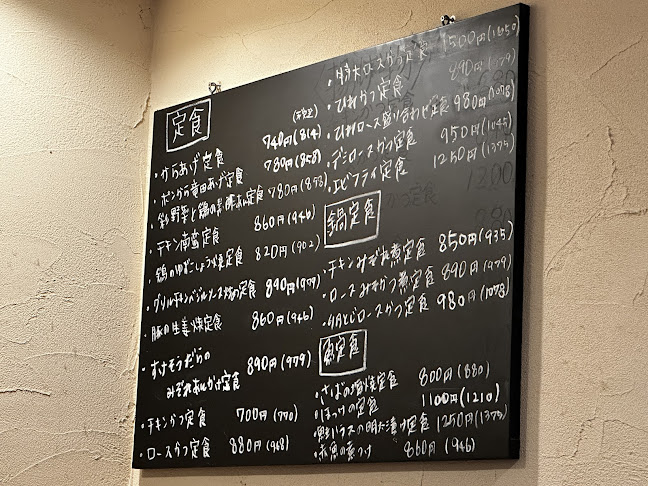 定食
(税込)
・からあげ定食 740円(814)
・ポンから竜田あげ定食 780円(858)
・彩り野菜と鶏の黒酢あん定食 780円(858)
・チキン南蛮定食 860円(946)
・鶏のゆずこしょう焼定食 820円(902)
・グリルチキンバジルソース定食 890円(979)
・豚の生姜焼定食 860円(946)
・すけそうだらの
みぞれあんかけ定食 890円(979)
・チキンかつ定食 700円(770)
・ロースかつ定食 880円(968)
・特大ロースかつ定食 1500円(1650)
・ひれかつ定食 890円(979)
・ひれロース盛り合わせ定食 980円(1078)
・デミロースかつ定食 950円(1045)
・エビフライ定食 1250円(1375)
鍋定食
・チキンみぞれ煮定食 850円(935)
・ロースみぞれかつ煮定食 890円(979)
・玉とじロースかつ定食 980円(1078)
魚定食
・さばの塩焼定食 800円(880)
・ほっけの定食 1100円(1210)
・鮭ハラスの明太漬け定食 1250円(1375)
・赤魚の煮つけ 860円(946)